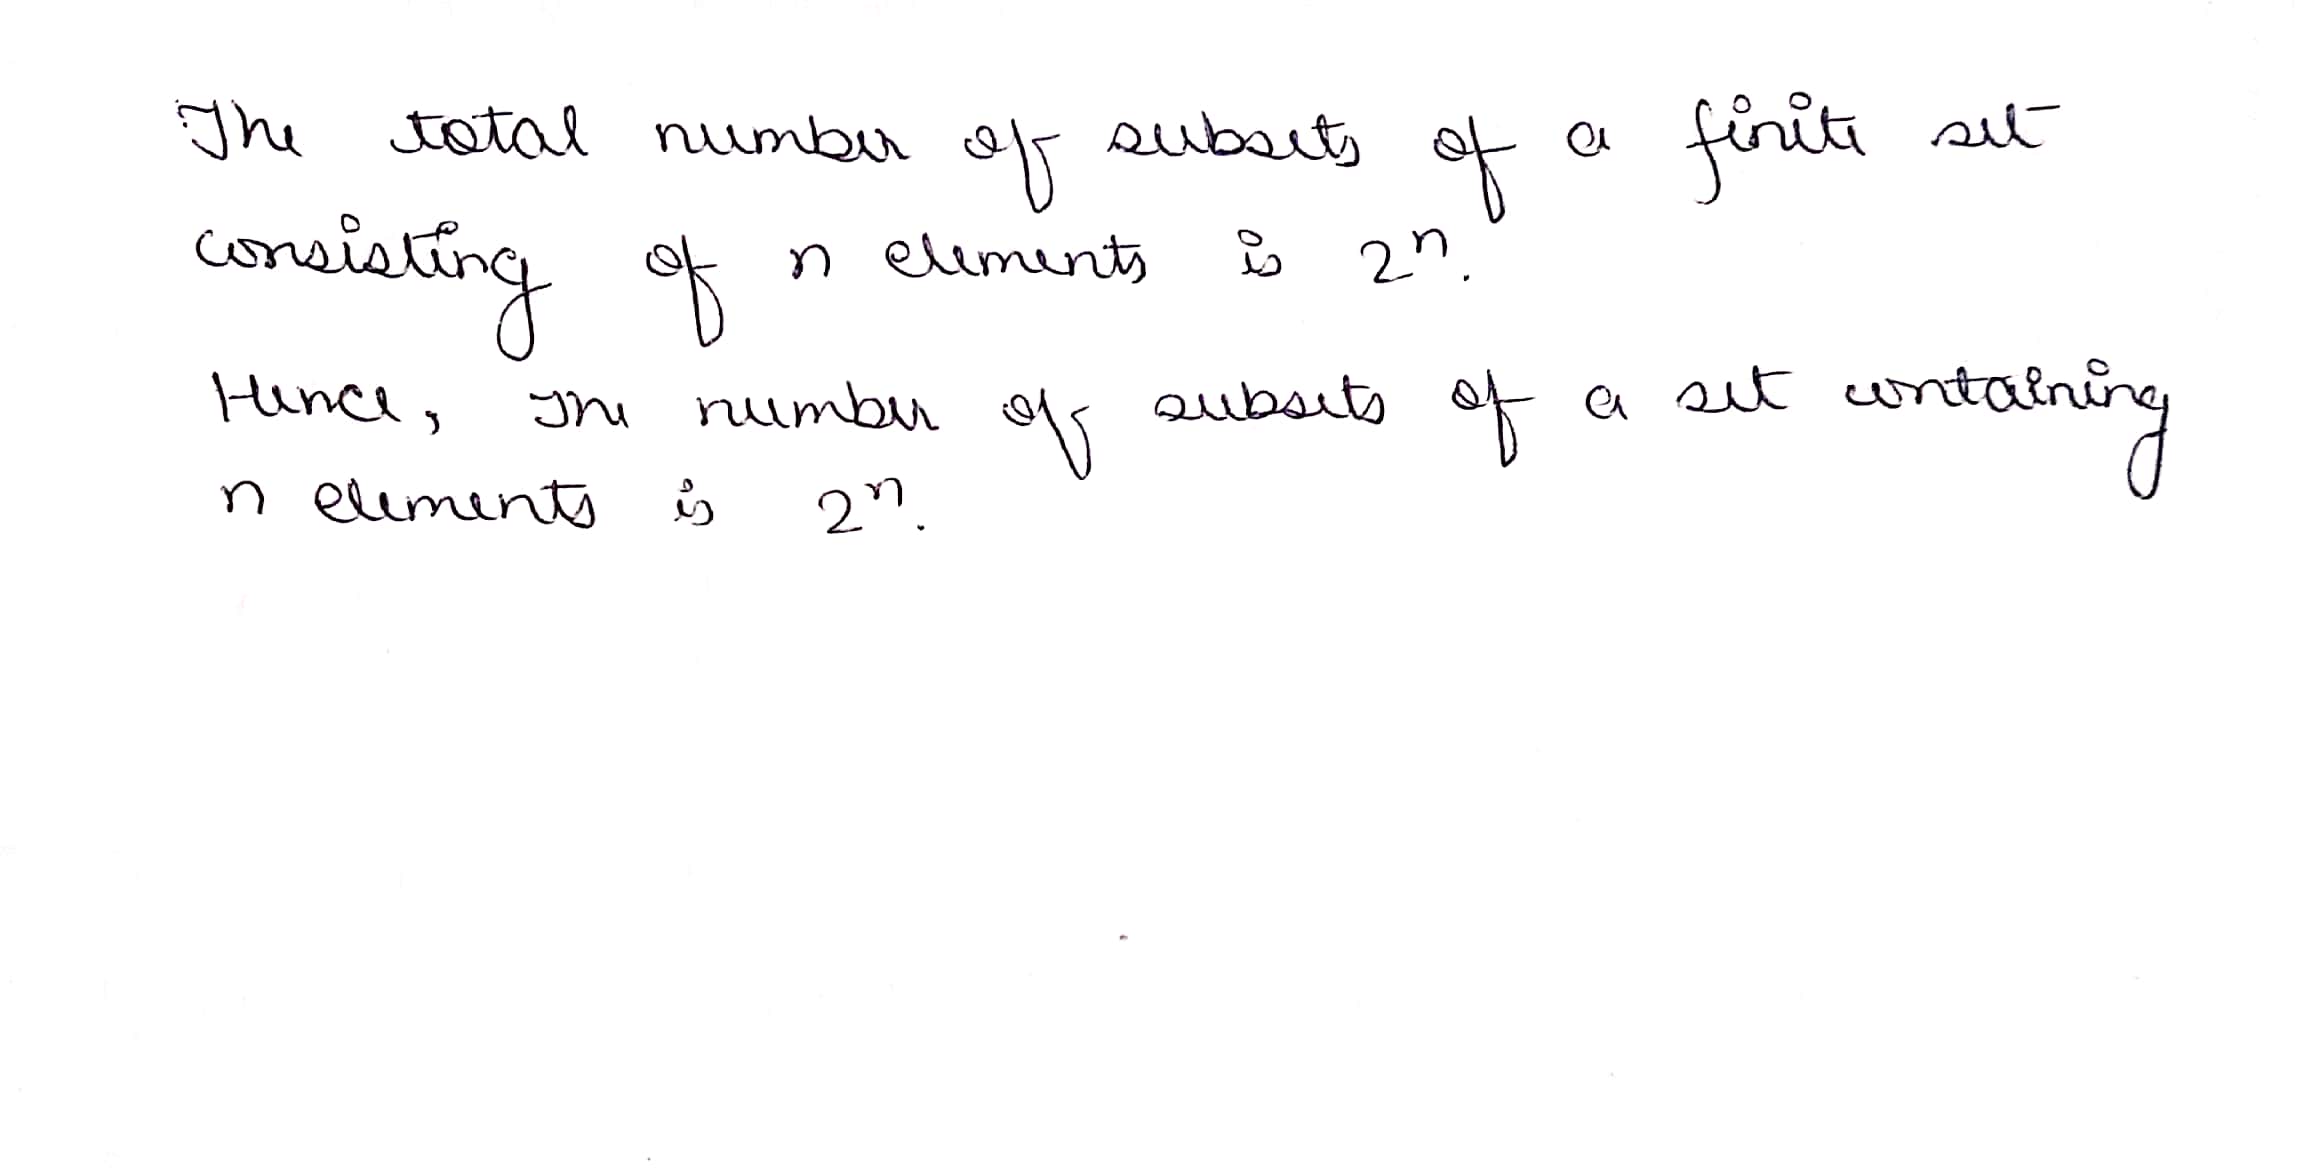 The total number of subsets of a finite set
consisting of n elements is 2ⁿ.
Hence, The number of subsets of a set containing
n elements is 2ⁿ.